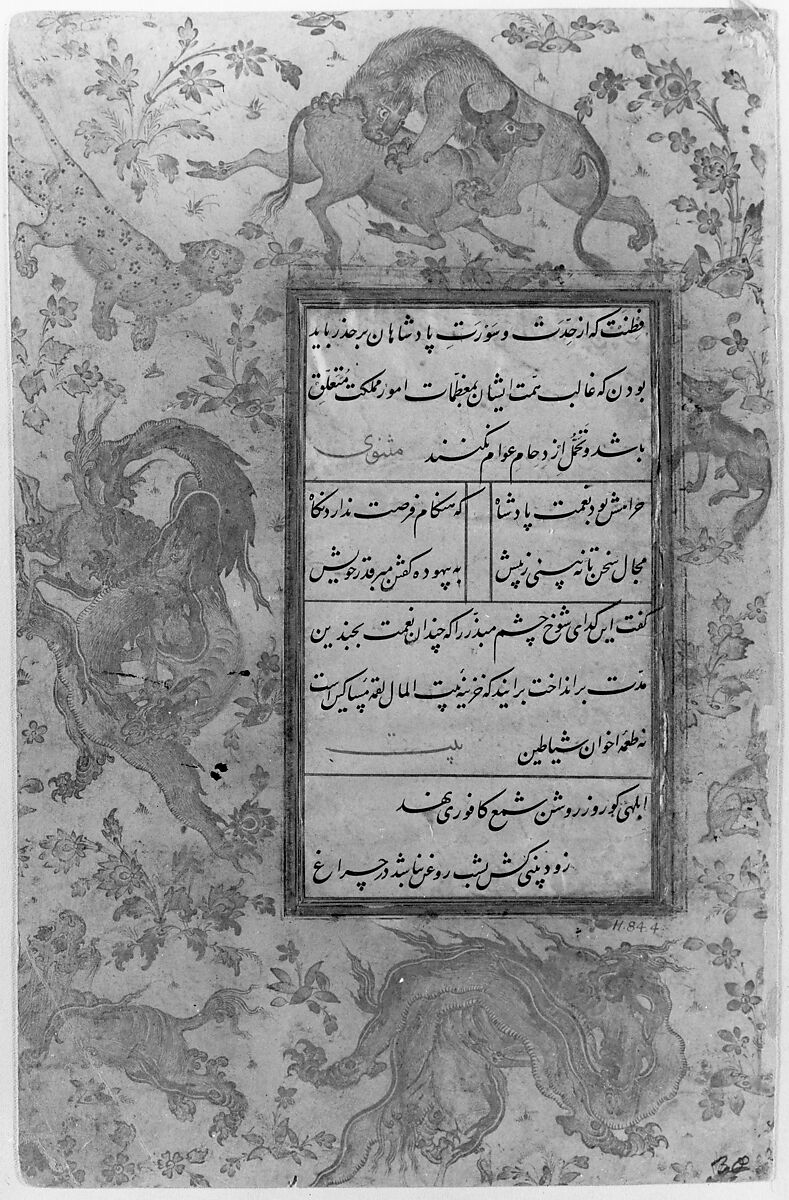 فِطنَت که از حِدّت و سَورَتِ پادشاهان بر حذر باید
بودن که غالب همّت ایشان بمعظمات امور مملکت مُتعلّق
باشد و تحمُّل ازدحام عوام نکنند مثنوی
حرامش بود نعمت پادشاه که هنگام فرصت ندارد نگاه
مجال سخن تا نه بینی ز پیش به بیهوده گفتن مبر قدر خویش
گفت این گدای شوخ چشم مبذّر را که چندان نعمت بچندین
مدّت برانداخت برانید که خزینهٔ بیت المال لقمهٔ مساکین است
نه طعمهٔ اخوان شیاطین بیت
ابلهی کو روز روشن شمع کافوری نهد
زود بینی کش بشب روغن نباشد در چراغ
H.844